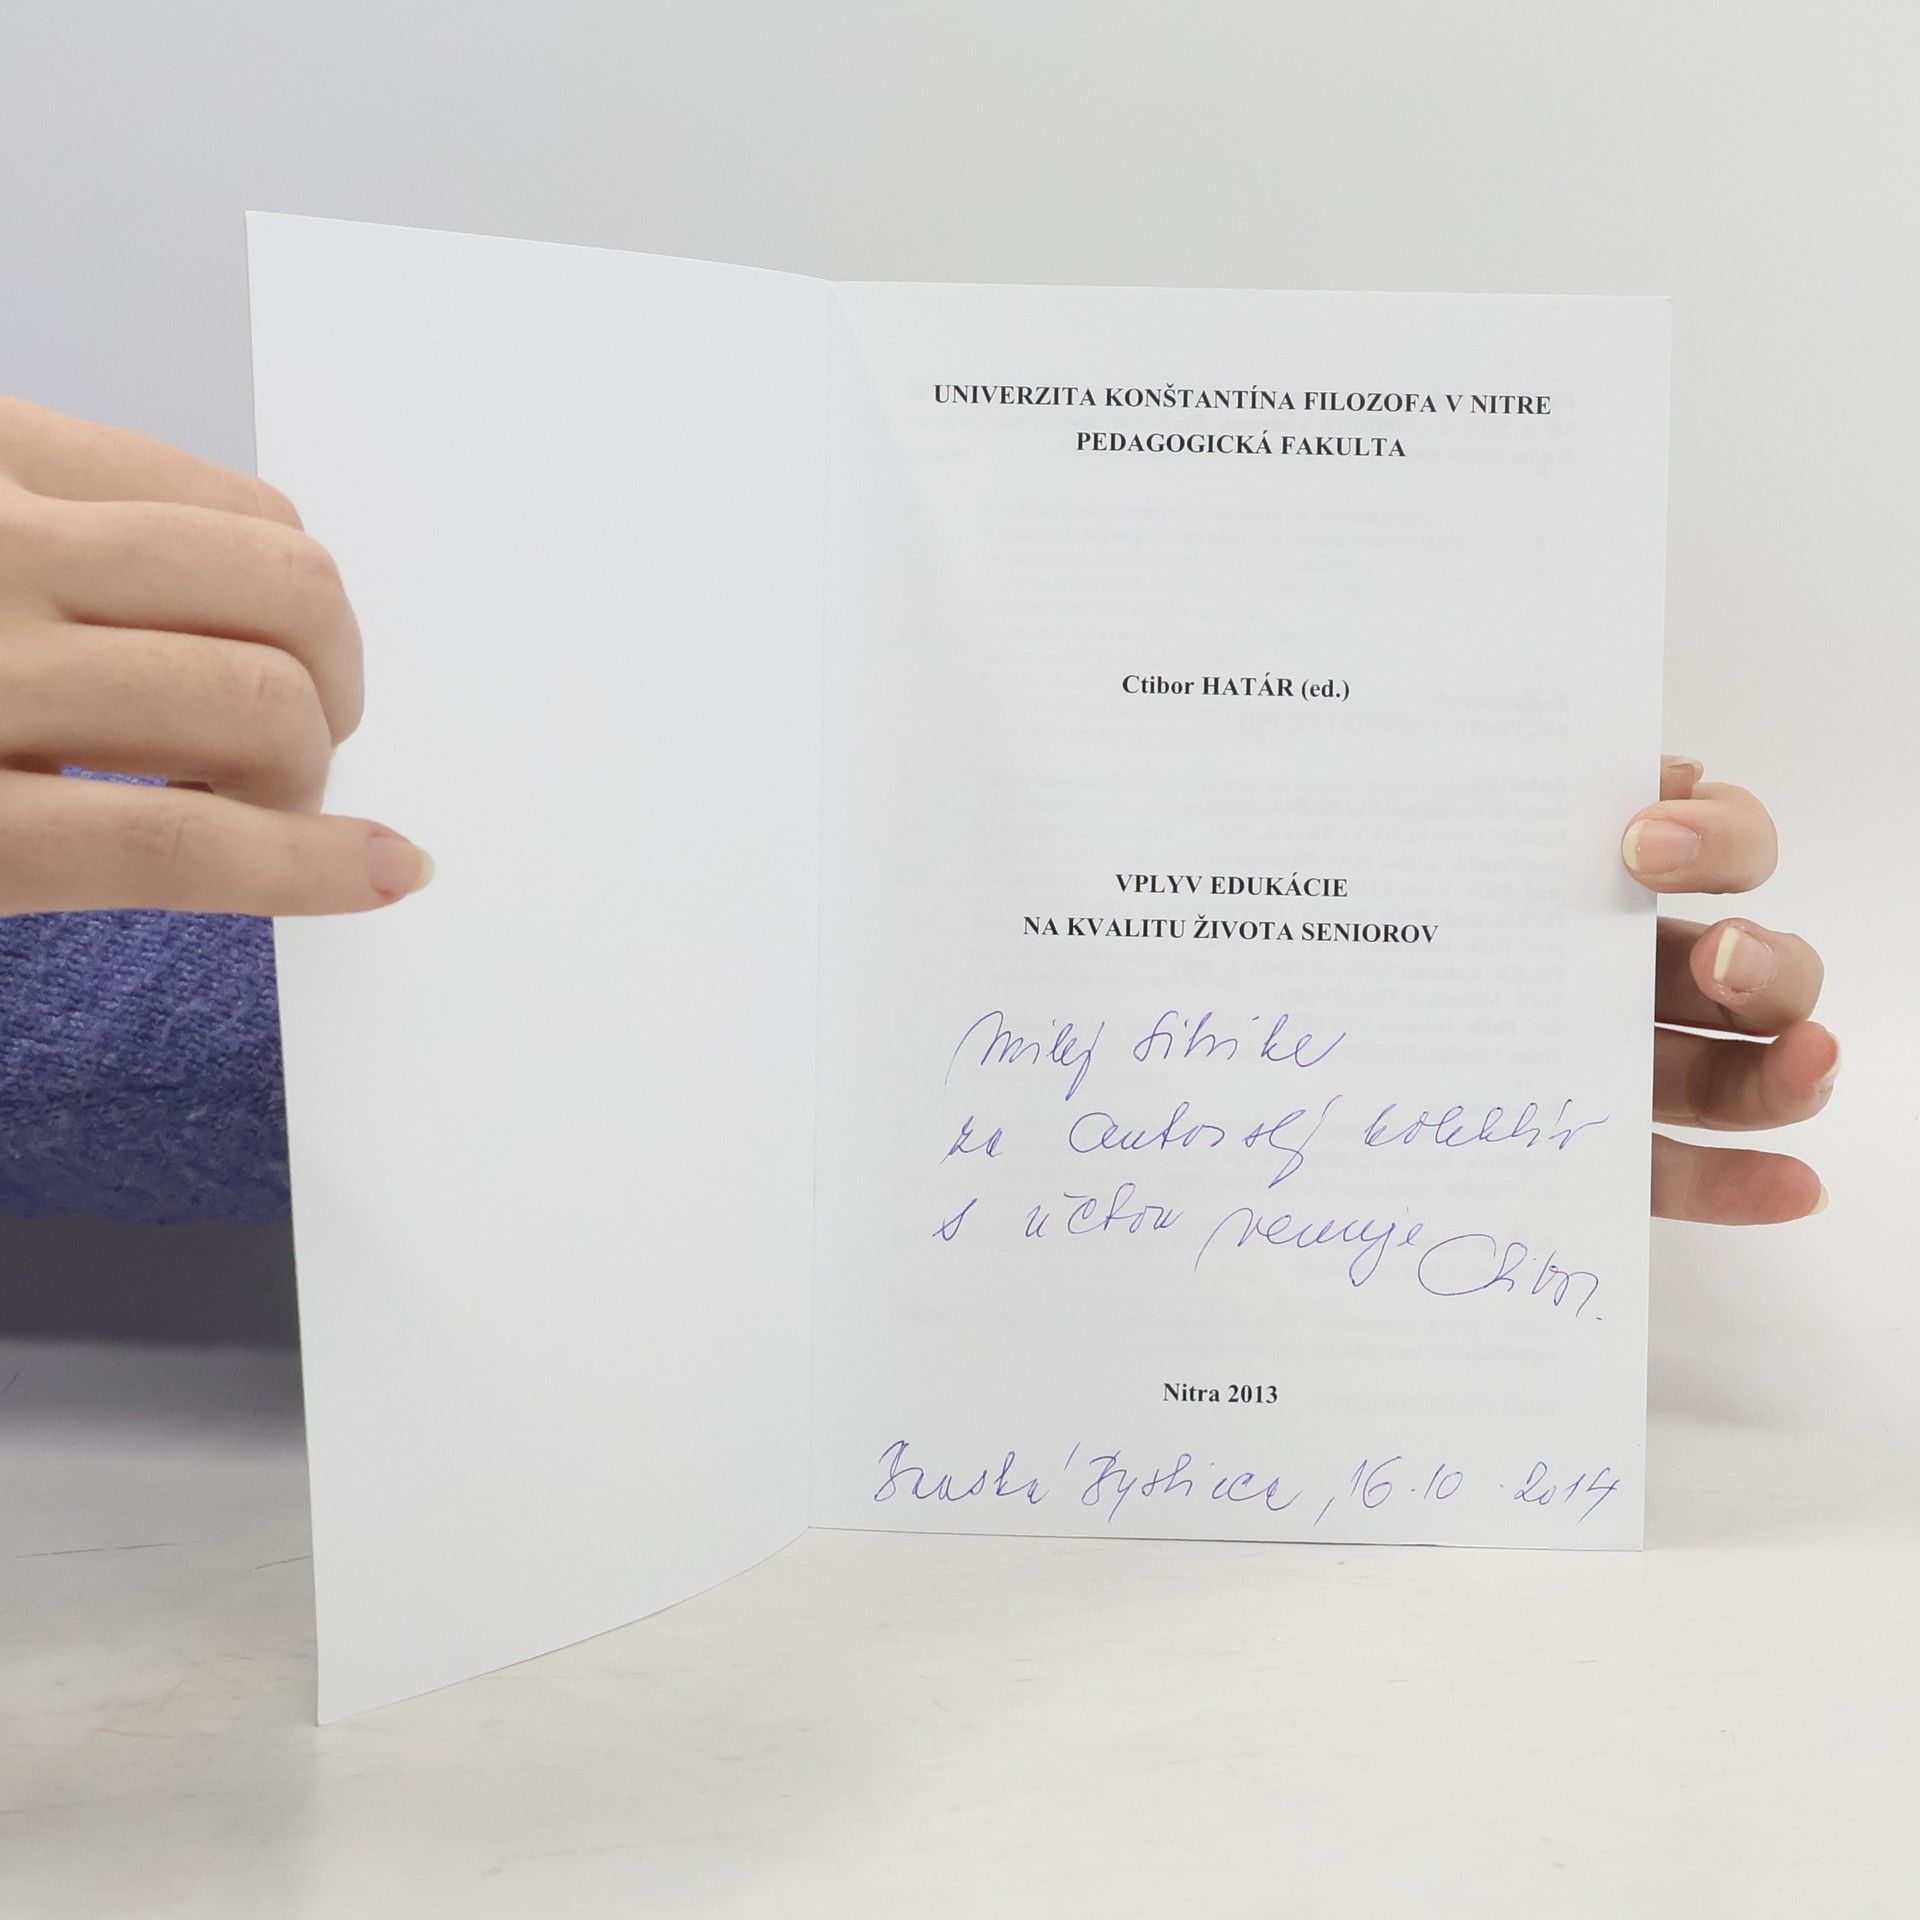 UNIVERZITA KONŠTANTÍNA FILOZOFA V NITRE
PEDAGOGICKÁ FAKULTA
Ctibor HATÁR (ed.)
VPLYV EDUKÁCIE
NA KVALITU ŽIVOTA SENIOROV
Milej Silvike
za autorský kolektív
s úctou venuje Ctibor.
Nitra 2013
Banská Bystrica, 16.10.2014